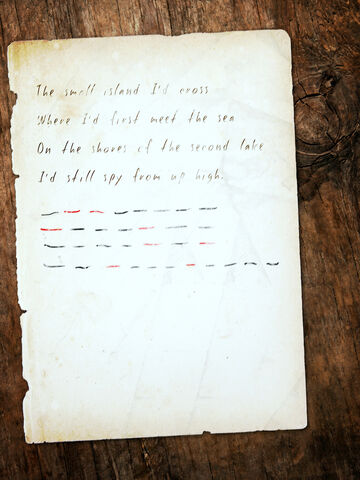 The small island I'd cross
Where I'd first meet the sea
On the shores of the second lake
I'd still spy from up high.